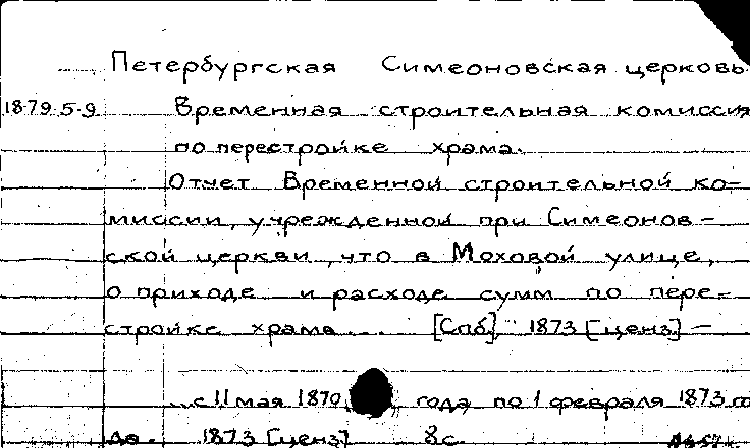 Петербургская Симеоновская церковь
18-79 5-9 Временная строительная комиссия
по перестройке храма.
Отчет Временной строительной ко-
миссии, учрежденной при Симеонов-
ской церкви, что в Моховой улице,
о приходе и расходе сумм по пере-
стройке храма... [Спб], 1873 [ценз] –
...с 11 мая 1870 года по 1 февраля 1873 го
да. 1873 [ценз] 8с.